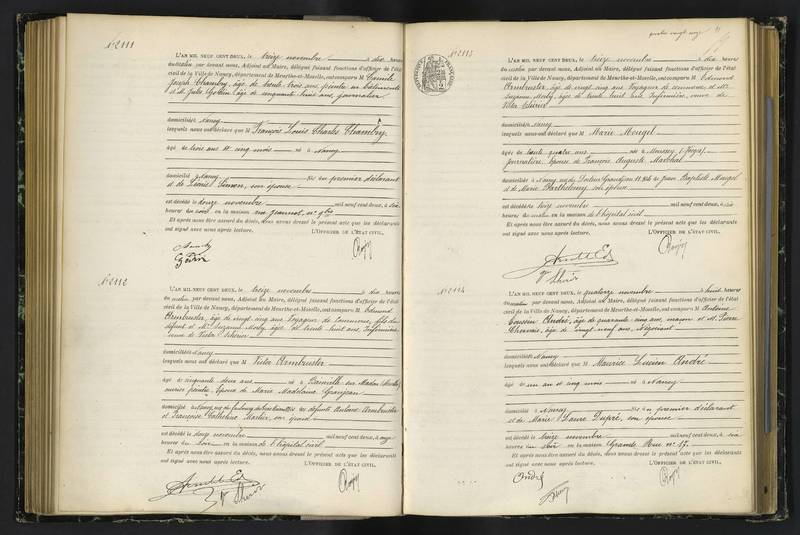 N° 2111
L'AN MIL NEUF CENT DEUX, le treize novembre à dix heures
du matin par devant nous, Adjoint au Maire, délégué faisant fonctions d'officier de l'état
civil de la Ville de Nancy, département de Meurthe-et-Moselle, ont comparu M Camille
Joseph Chambry, âge de trente trois ans, peintre en bâtiments
et de Jules âge de cinquante ans, journalier
domiciliés à Nancy
lesquels nous ont déclaré que M François Louis Charles Chambry
âgé de trois ans et cinq mois né à Nancy
domicilié à Nancy fils du premier déclarant
et de Simon, son épouse
est décédé le douze novembre mil neuf cent deux, à six
heures du soir en la maison rue Jeannot, n° 9bis
Et après nous être assuré du décès, nous avons dressé le présent acte que les déclarants
ont signé avec nous après lecture. L'OFFICIER DE L'ÉTAT CIVIL,
N° 2112
L'AN MIL NEUF CENT DEUX, le treize novembre à dix heures
du matin par devant nous, Adjoint au Maire, délégué faisant fonctions d'officier de l'état
civil de la Ville de Nancy, département de Meurthe-et-Moselle, ont comparu M Edmond
Armbruster, âge de vingt cinq ans, Voyageur de commerce, fils du
défunt et Me Suzanne âge de trente huit ans, Infirmière,
veuve de Victor
domiciliés à Nancy
lesquels nous ont déclaré que M Victor Armbruster
âgé de cinquante deux ans né à
ouvrier peintre, époux de Marie Madeleine Grosjean
domicilié à Nancy, rue du faubourg des trois fils de défunts Antoine Armbruster
et Françoise Catherine son épouse
est décédé le douze novembre mil neuf cent deux, à onze
heures du soir en la maison de l'hôpital civil
Et après nous être assuré du décès, nous avons dressé le présent acte que les déclarants
ont signé avec nous après lecture. L'OFFICIER DE L'ÉTAT CIVIL,
quatre vingt onze
N° 2113
L'AN MIL NEUF CENT DEUX, le treize novembre à dix heures
du matin par devant nous, Adjoint au Maire, délégué faisant fonctions d'officier de l'état
civil de la Ville de Nancy, département de Meurthe-et-Moselle, ont comparu M Edmond
Armbruster, âge de vingt cinq ans, Voyageur de commerce, et Me
Suzanne âge de trente huit ans, Infirmière, veuve de
Victor
domiciliés à Nancy
lesquels nous ont déclaré que M Marie Mougel
âgée de trente quatre ans née à Moussey (Vosges)
journalière, épouse de François Auguste Maréchal
domiciliée à Nancy, rue du Docteur Grandjean fille de Jean Baptiste Mougel
et de Marie Barthelemy son épouse
est décédée le treize novembre mil neuf cent deux, à six
heures du matin en la maison de l'hôpital civil
Et après nous être assuré du décès, nous avons dressé le présent acte que les déclarants
ont signé avec nous après lecture. L'OFFICIER DE L'ÉTAT CIVIL,
N° 2114
L'AN MIL NEUF CENT DEUX, le quatorze novembre à huit heures
du matin par devant nous, Adjoint au Maire, délégué faisant fonctions d'officier de l'état
civil de la Ville de Nancy, département de Meurthe-et-Moselle, ont comparu M Antoine
André, âge de quarante cinq ans, maçon et M. Pierre
âge de vingt neuf ans, Négociant
domiciliés à Nancy
lesquels nous ont déclaré que M Maurice Lucien André
âgé de un an et cinq mois né à Nancy
domicilié à Nancy fils du premier déclarant
et de Marie Laure Dupré, son épouse
est décédé le treize novembre mil neuf cent deux, à six
heures du soir en la maison Grande Rue n° 17
Et après nous être assuré du décès, nous avons dressé le présent acte que les déclarants
ont signé avec nous après lecture. L'OFFICIER DE L'ÉTAT CIVIL,
André